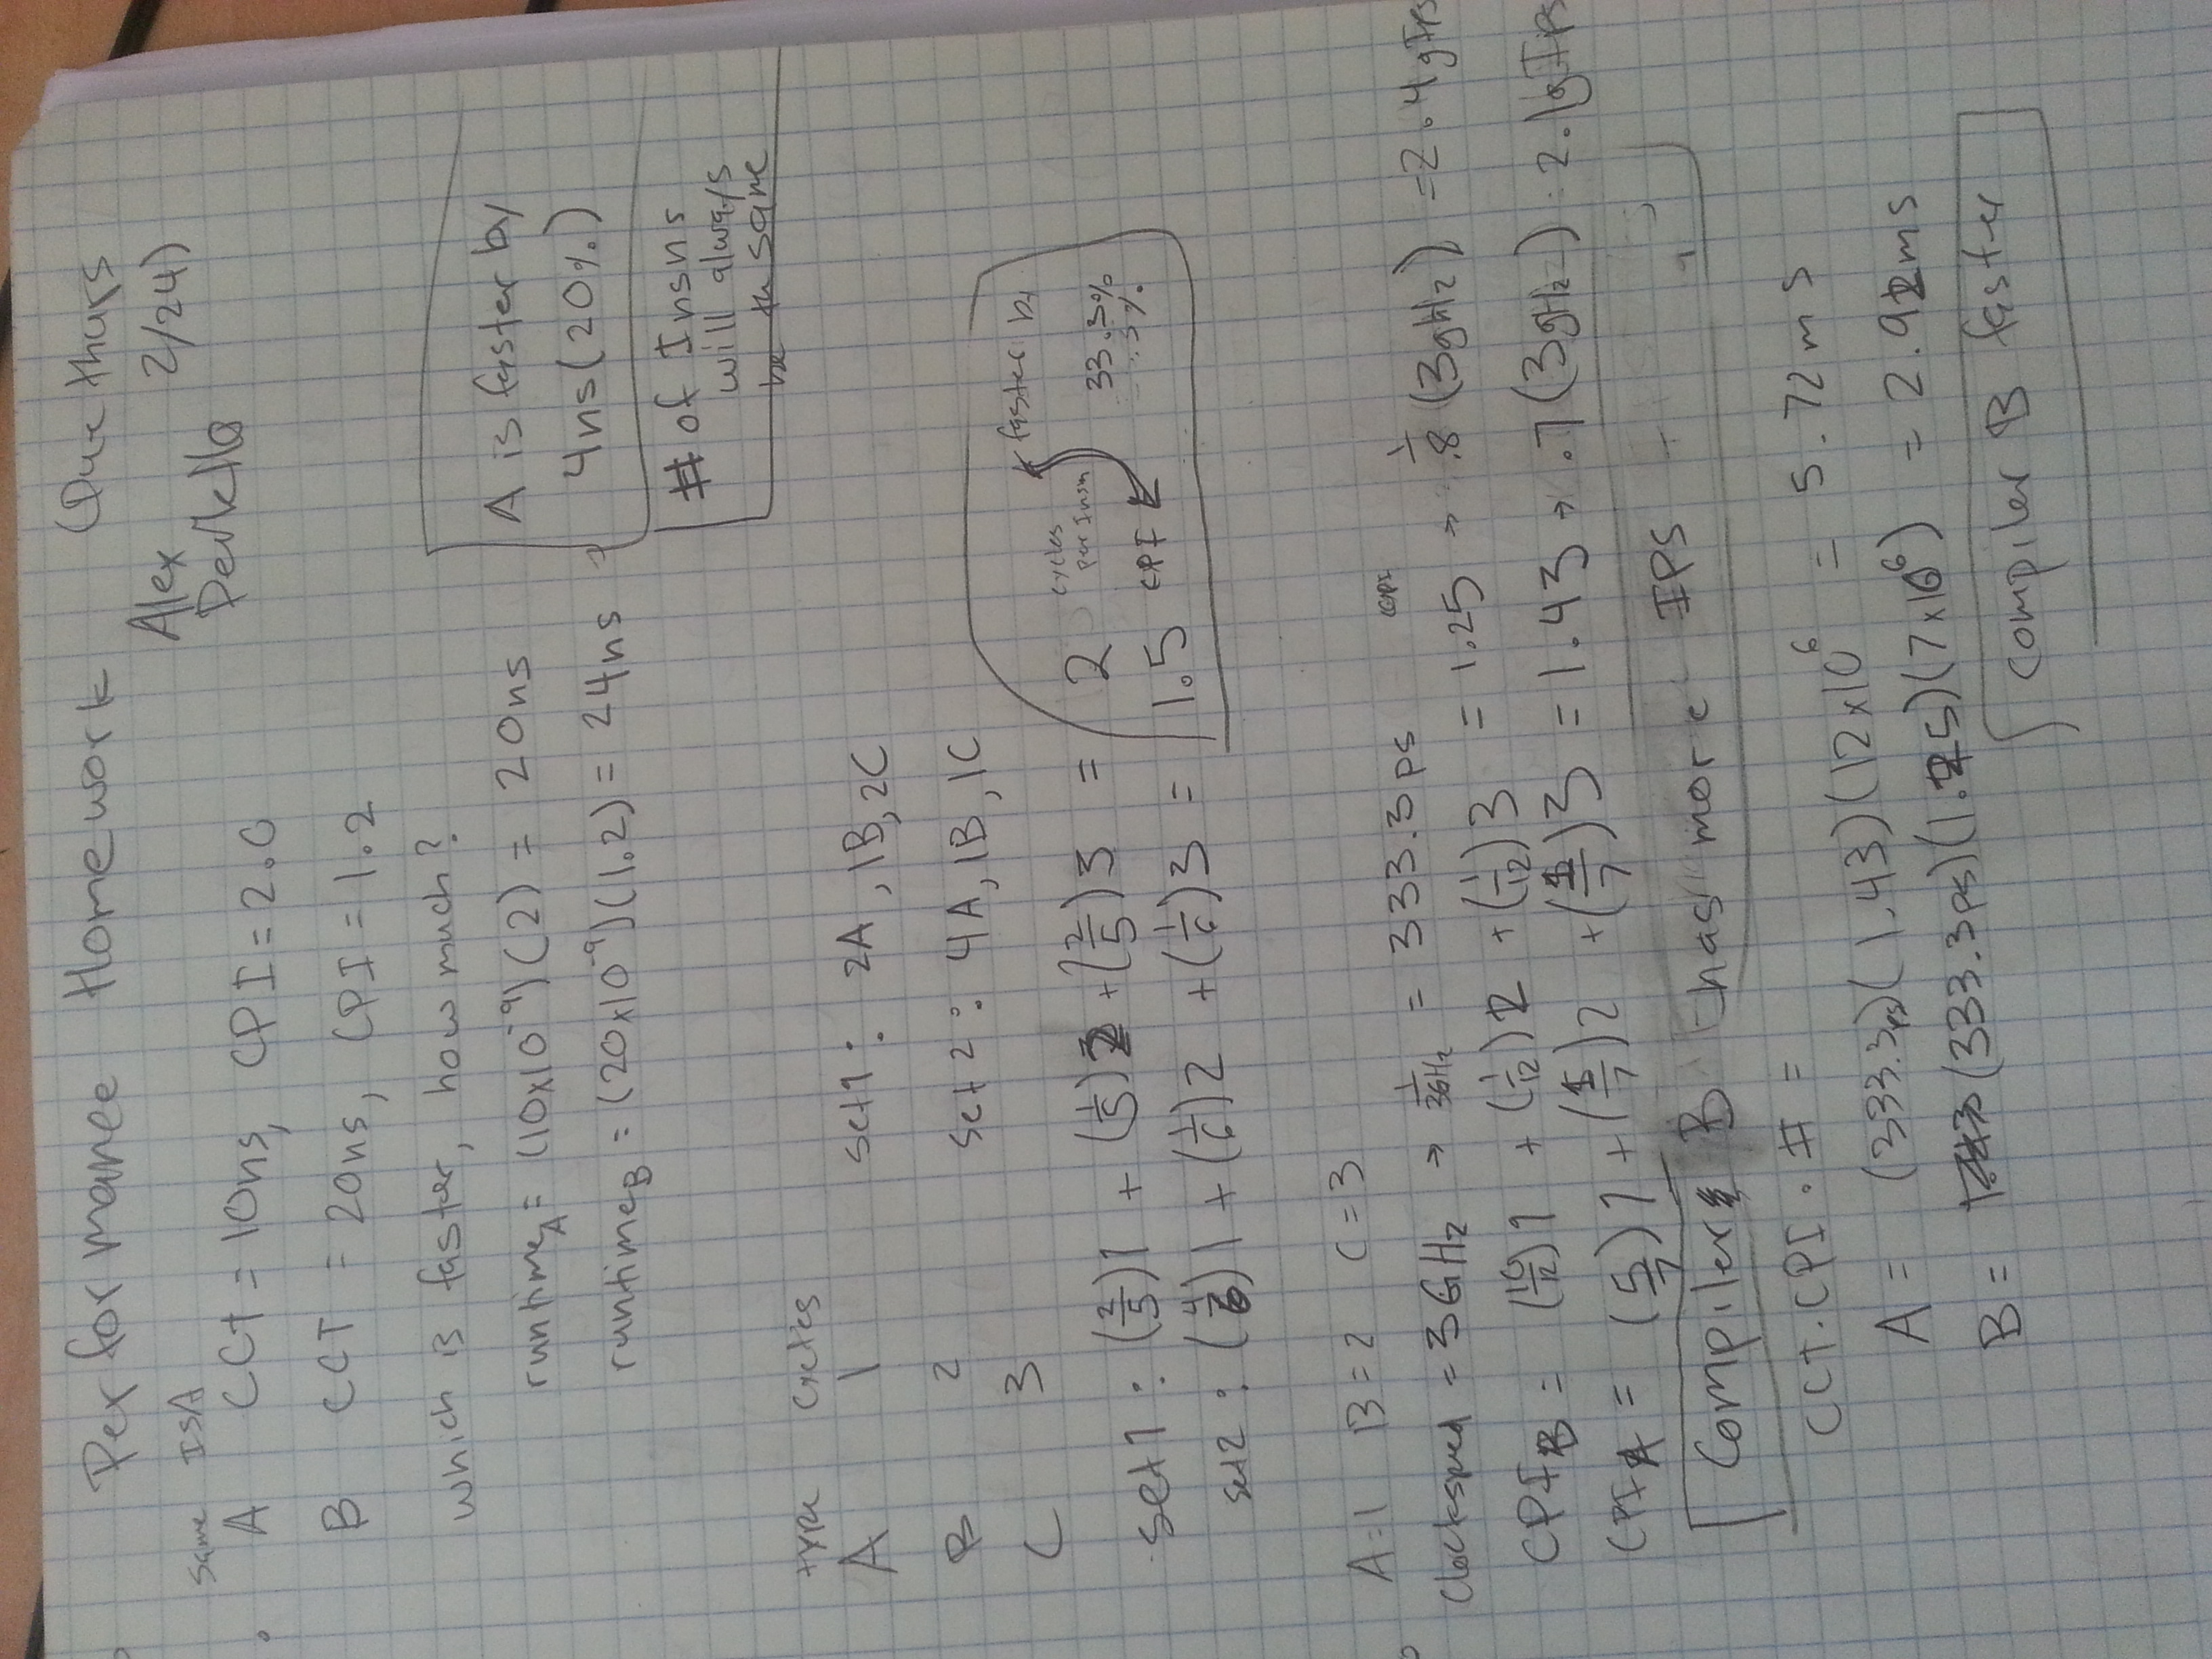 Performance Homework
Due thurs
2/24)
Alex
same ISA
A CCT = 10ns, CPI = 2.0
B CCT = 20ns, CPI = 1.2
which is faster, how much?
runtime A = (10x10^-9)(2) = 20ns
runtime B = (20x10^-9)(1.2) = 24ns
A is faster by
4ns (20%)
# of Insns
will always
be the same
type cycles
A 1
B 2
C 3
set 1: 2A, 1B, 2C
set 2: 4A, 1B, 1C
set 1: (2/5)1 + (1/5)2 + (2/5)3 = 2
set 2: (4/6)1 + (1/6)2 + (1/6)3 = 1.5
cycles
per Insn
CPI
faster by
33.3%
A=1 B=2 C=3
Clockspeed = 3GHz → 1/3GHz = 333.3ps
CPI B = (10/12)1 + (1/12)2 + (1/12)3 = 1.25 → .8 (3gHz) = 2.4gIPS
CPI A = (5/7)1 + (1/7)2 + (1/7)3 = 1.43 → .7 (3gHz) = 2.1gIPS
Compiler B has more IPS
CCT · CPI · # =
A = (333.3ps)(1.43)(12x10^6 = 5.72ms
B = (333.3ps)(1.25)(7x10^6) = 2.92ms
compiler B faster